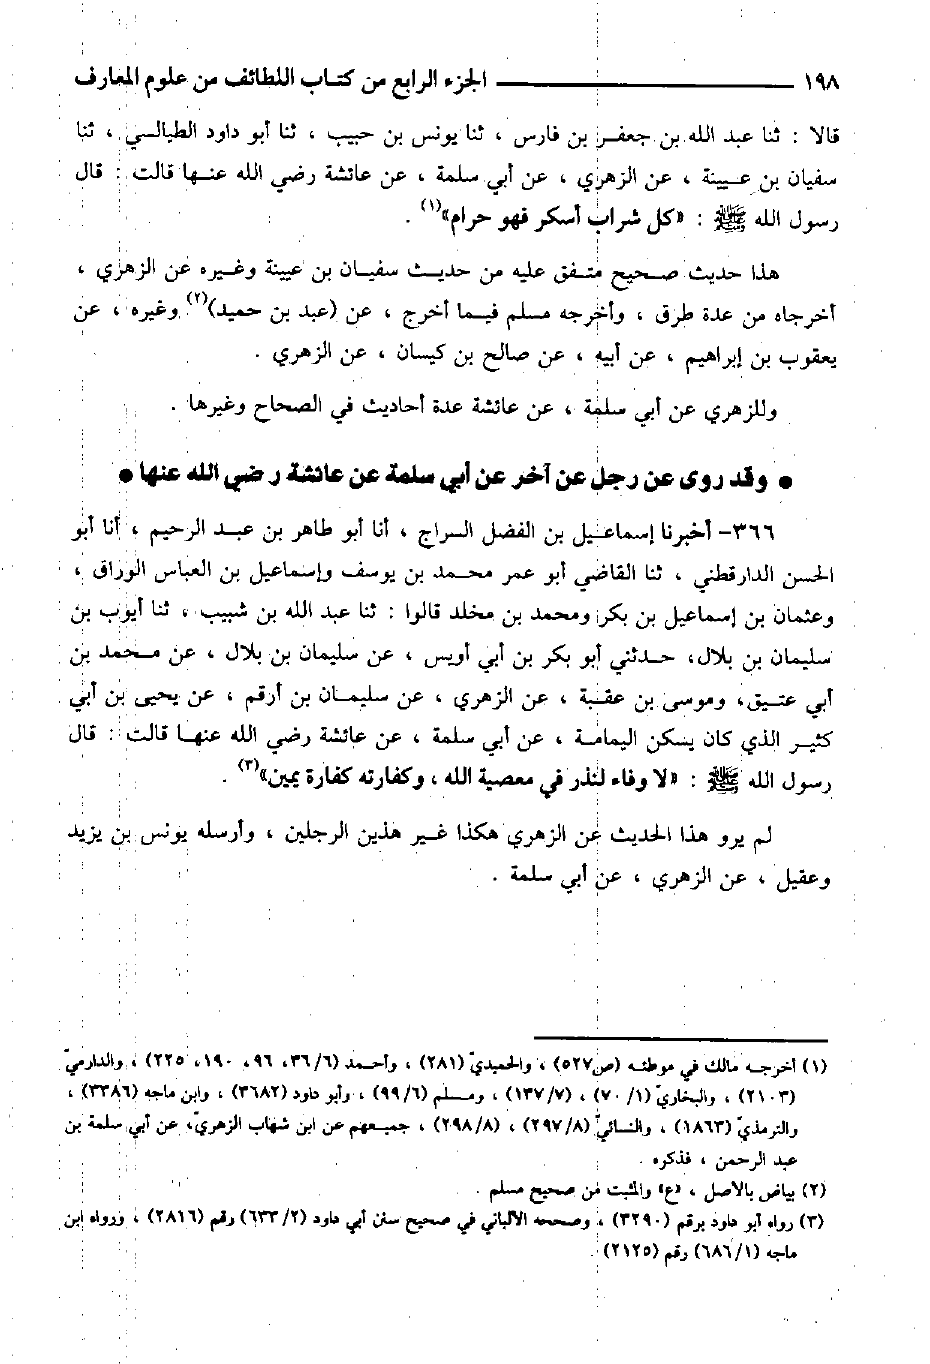 ١٩٨ الجزء الرابع من كتاب اللطائف من علوم المعارف
قالا : ثنا عبد الله بن جعفر بن فارس ، ثنا يونس بن حبيب ، ثنا أبو داود الطيالسي ، ثنا
سفيان بن عيينة ، عن الزهري ، عن أبي سلمة ، عن عائشة رضي الله عنها قالت : قال
رسول الله ﷺ : «كل شراب أسكر فهو حرام»(١) .
هذا حديث صحيح متفق عليه من حديث سفيان بن عيينة وغيره عن الزهري ،
أخرجاه من عدة طرق ، وأخرجه مسلم فيما أخرج ، عن (عبد بن حميد)(٢) وغيره ، عن
يعقوب بن إبراهيم ، عن أبيه ، عن صالح بن كيسان ، عن الزهري .
وللزهري عن أبي سلمة ، عن عائشة عدة أحاديث في الصحاح وغيرها .
● وقد روى عن رجل عن آخر عن أبي سلمة عن عائشة رضي الله عنها ●
٣٦٦- أخبرنا إسماعيل بن الفضل السراج ، أنا أبو طاهر بن عبد الرحيم ، أنا أبو
الحسن الدارقطني ، ثنا القاضي أبو عمر محمد بن يوسف وإسماعيل بن العباس الوراق ،
وعثمان بن إسماعيل بن بكر ومحمد بن مخلد قالوا : ثنا عبد الله بن شبيب ، ثنا أيوب بن
سليمان بن بلال، حدثني أبو بكر بن أبي أويس ، عن سليمان بن بلال ، عن محمد بن
أبي عتيق، وموسى بن عقبة ، عن الزهري ، عن سليمان بن أرقم ، عن يحيى بن أبي
كثير الذي كان يسكن اليمامة ، عن أبي سلمة ، عن عائشة رضي الله عنها قالت : قال
رسول الله ﷺ : «لا وفاء لنذر في معصية الله ، وكفارته كفارة يمين»(٣) .
لم يرو هذا الحديث عن الزهري هكذا غير هذين الرجلين ، وأرسله يونس بن يزيد
وعقيل ، عن الزهري ، عن أبي سلمة .
(١) أخرجه مالك في موطئه (ص٥٢٧) ، والحميديّ (٢٨١) ، وأحمد (٣٦/٦، ٩٦، ١٩٠، ٢٢٥) ، والدارميّ
(٢١٠٣) ، والبخاريّ (٧٠/١) ، (١٣٧/٧) ، ومسلم (٩٩/٦) ، وأبو داود (٣٦٨٢) ، وابن ماجه (٣٣٨٦) ،
والترمذيّ (١٨٦٣) ، والنسائيّ (٢٩٧/٨) ، (٢٩٨/٨) ، جميعهم عن ابن شهاب الزهريّ، عن أبي سلمة بن
عبد الرحمن ، فذكره .
(٢) بياض بالأصل ، «ع» والمثبت من صحيح مسلم .
(٣) رواه أبو داود برقم (٣٢٩٠) ، وصححه الألباني في صحيح سنن أبي داود (٦٣٣/٢) رقم (٢٨١٦) ، ورواه ابن
ماجه (٦٨٦/١) رقم (٢١٢٥) .